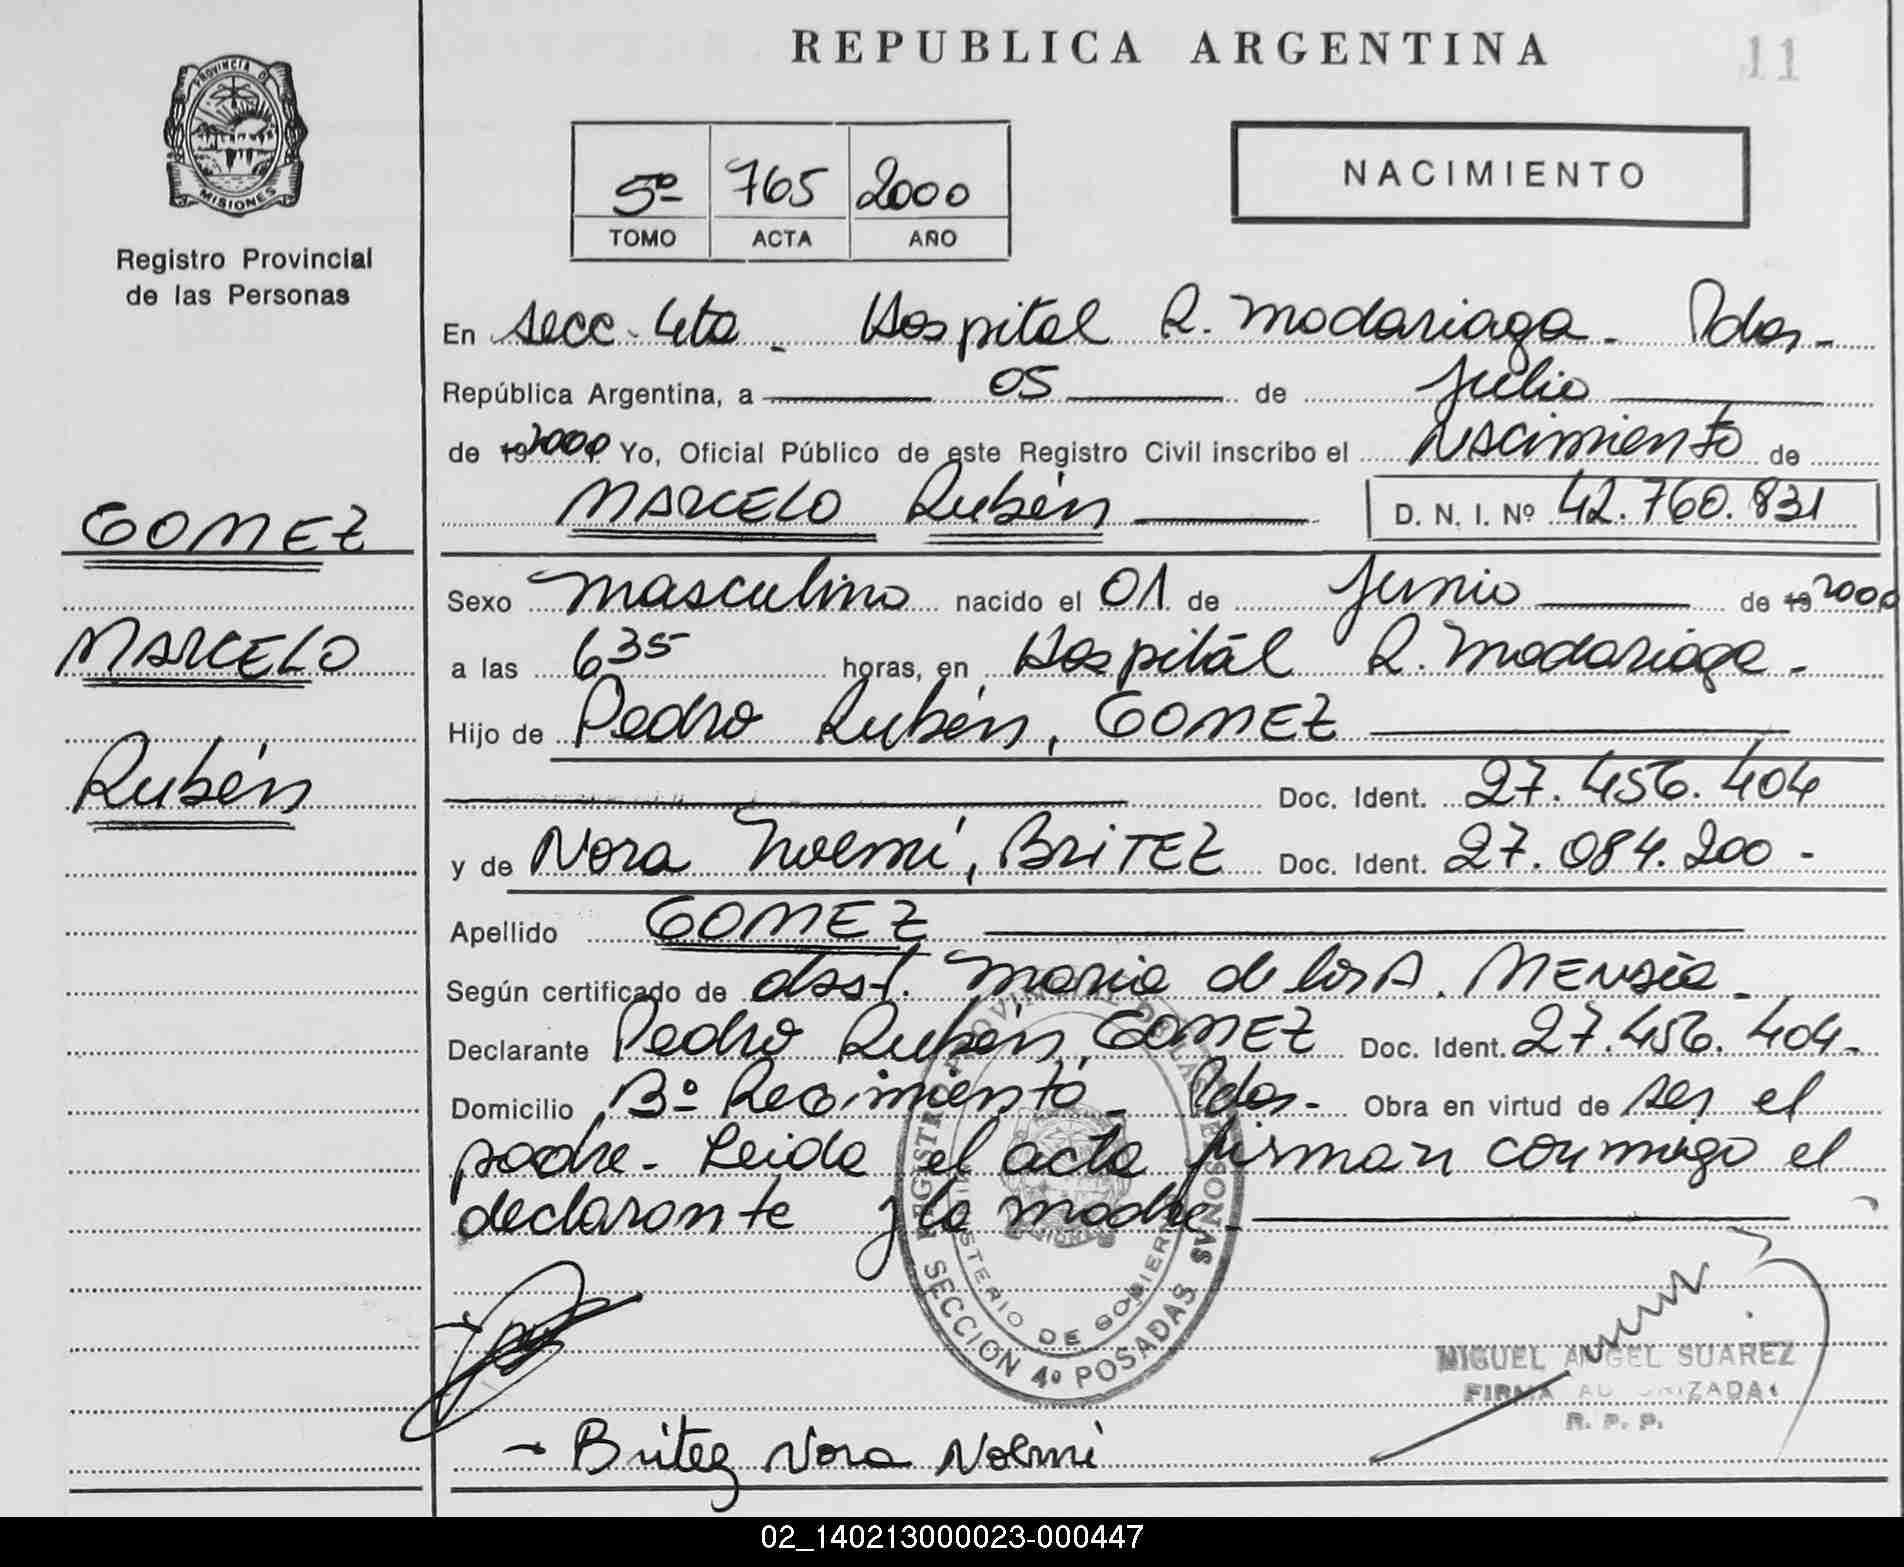 REPUBLICA ARGENTINA
11
PROVINCIA D
MISIONES
Registro Provincial
de las Personas
5º 765 2000
TOMO ACTA AÑO
NACIMIENTO
En secc. 4ta - Hospital R. Madariaga - Pdas -
República Argentina, a 05 de Julio
de 19 2000 Yo, Oficial Público de este Registro Civil inscribo el Nacimiento de
MARCELO Rubén D. N. I. Nº 42.760.831
GOMEZ
MARCELO
Rubén
Sexo masculino nacido el 01 de Junio de 19 2000
a las 6 35 horas, en Hospitál R. Madariaga -
Hijo de Pedro Rubén, GOMEZ
Doc. Ident. 27.456.404
y de Nora Noemí, BRITEZ Doc. Ident. 27.084.200 -
Apellido GOMEZ
Según certificado de obst. Maria de los A. MENSia -
Declarante Pedro Rubén, GOMEZ Doc. Ident. 27.456.404 -
Domicilio Bº Regimiento - Pdas - Obra en virtud de ser el
padre - Leida el acta firman conmigo el
declarante y la madre -
REGISTRO PROVINCIAL DE LAS PERSONAS
MINISTERIO DE GOBIERNO
SECCION 4º POSADAS
MIGUEL ANGEL SUAREZ
FIRMA AUTORIZADA
R. P. P.
- Britez Nora Noemi
02_140213000023-000447